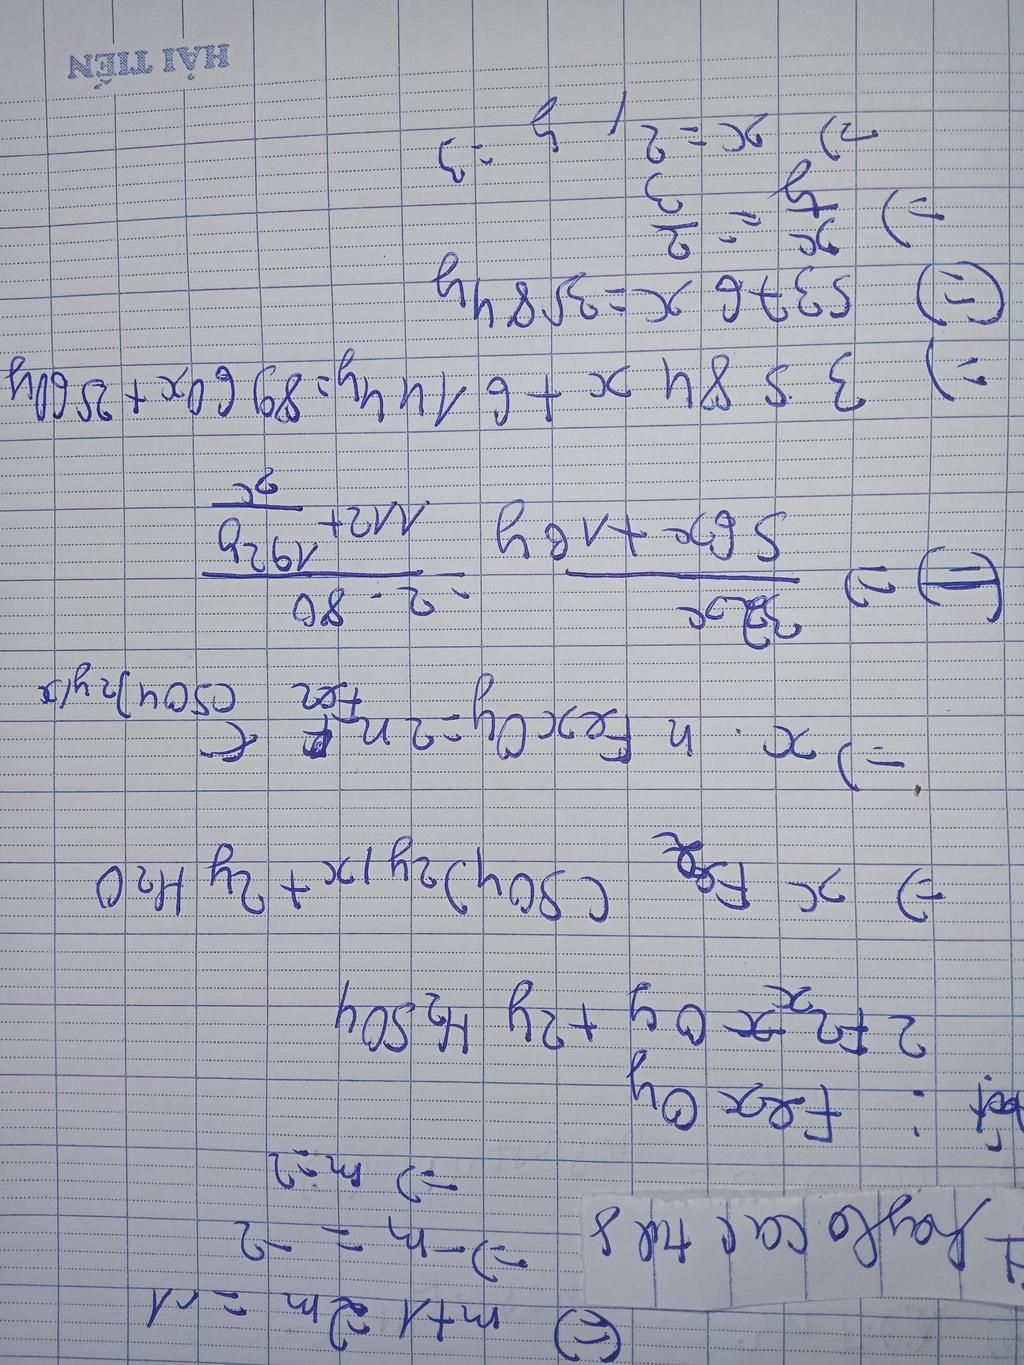 (=) m+1-2m = -1
=) -m = -2
=) m=2
I haylocacties
Đặt : FexOy
2 FexOy + 2y H2SO4
=) x Fe2 (SO4)2y/x + 2y H2O
=) x . n FexOy = 2 n Fe2 (SO4)2y/x
(=) =) 32x / 56x+16y = 2.80 / 112+ 192y/x
=) 3584x + 6144y = 8960x + 2560y
(=) 5376x = 3584y
=) x/y = 2/3
=) x = 2 , y = 3
HẢI TIẾN